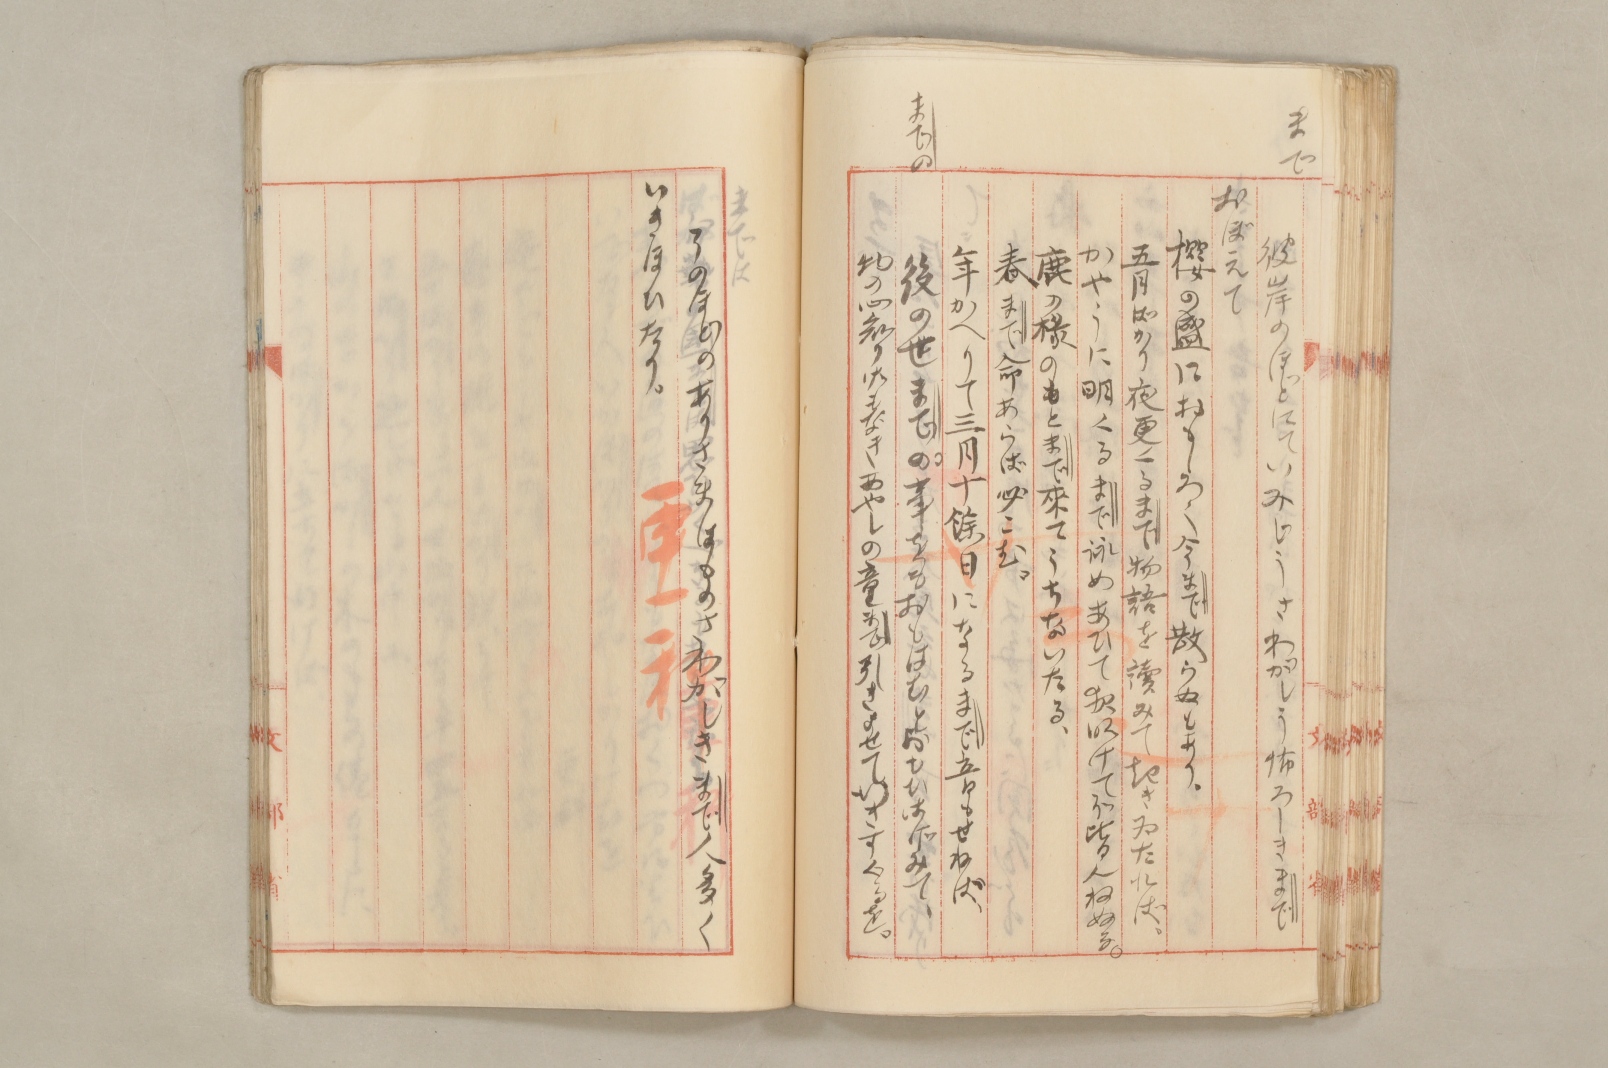 まで
彼岸のほどにていみじうさわがしう怖ろしきまで
おぼえて
櫻の盛におもしろく今まで散らぬもあり。
五月ばかり夜更くるまで物語を讀みて起きゐたれば、
かやうに明くるまで詠めあひて夜明けてぞ皆人ねぬる。
鹿の椽のもとまで來てうちないたる、
春まで命あらば必こむ。
年かへりて三月十餘日になるまで音もせねば、
までの
後の世までの事をもおもはむと思ひはげみて、
物の心知り
なきあやしの童まで引きよせて
までは
このほどのありさまはものさわがしきまで人多く
いきほひたり。
更科
文部省